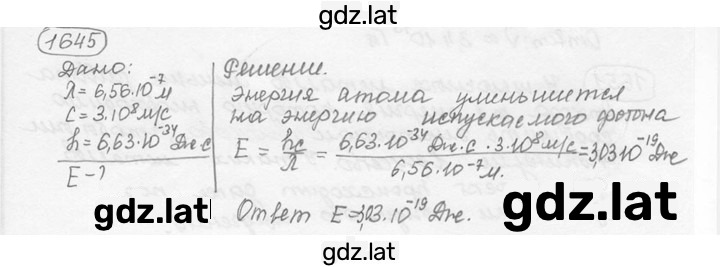 gdz.lat
1645
Дано:
λ = 6,56·10⁻⁷ м
c = 3·10⁸ м/с
h = 6,63·10⁻³⁴ Дж·с
E - ?
Решение.
Энергия атома уменьшится
на энергию испускаемого фотона
E = hc/λ = 6,63·10⁻³⁴ Дж·с · 3·10⁸ м/с / 6,56·10⁻⁷ м. = 3,03·10⁻¹⁹ Дж
gdz.lat
gdz.lat
Ответ E = 3,03·10⁻¹⁹ Дж.
gdz.lat